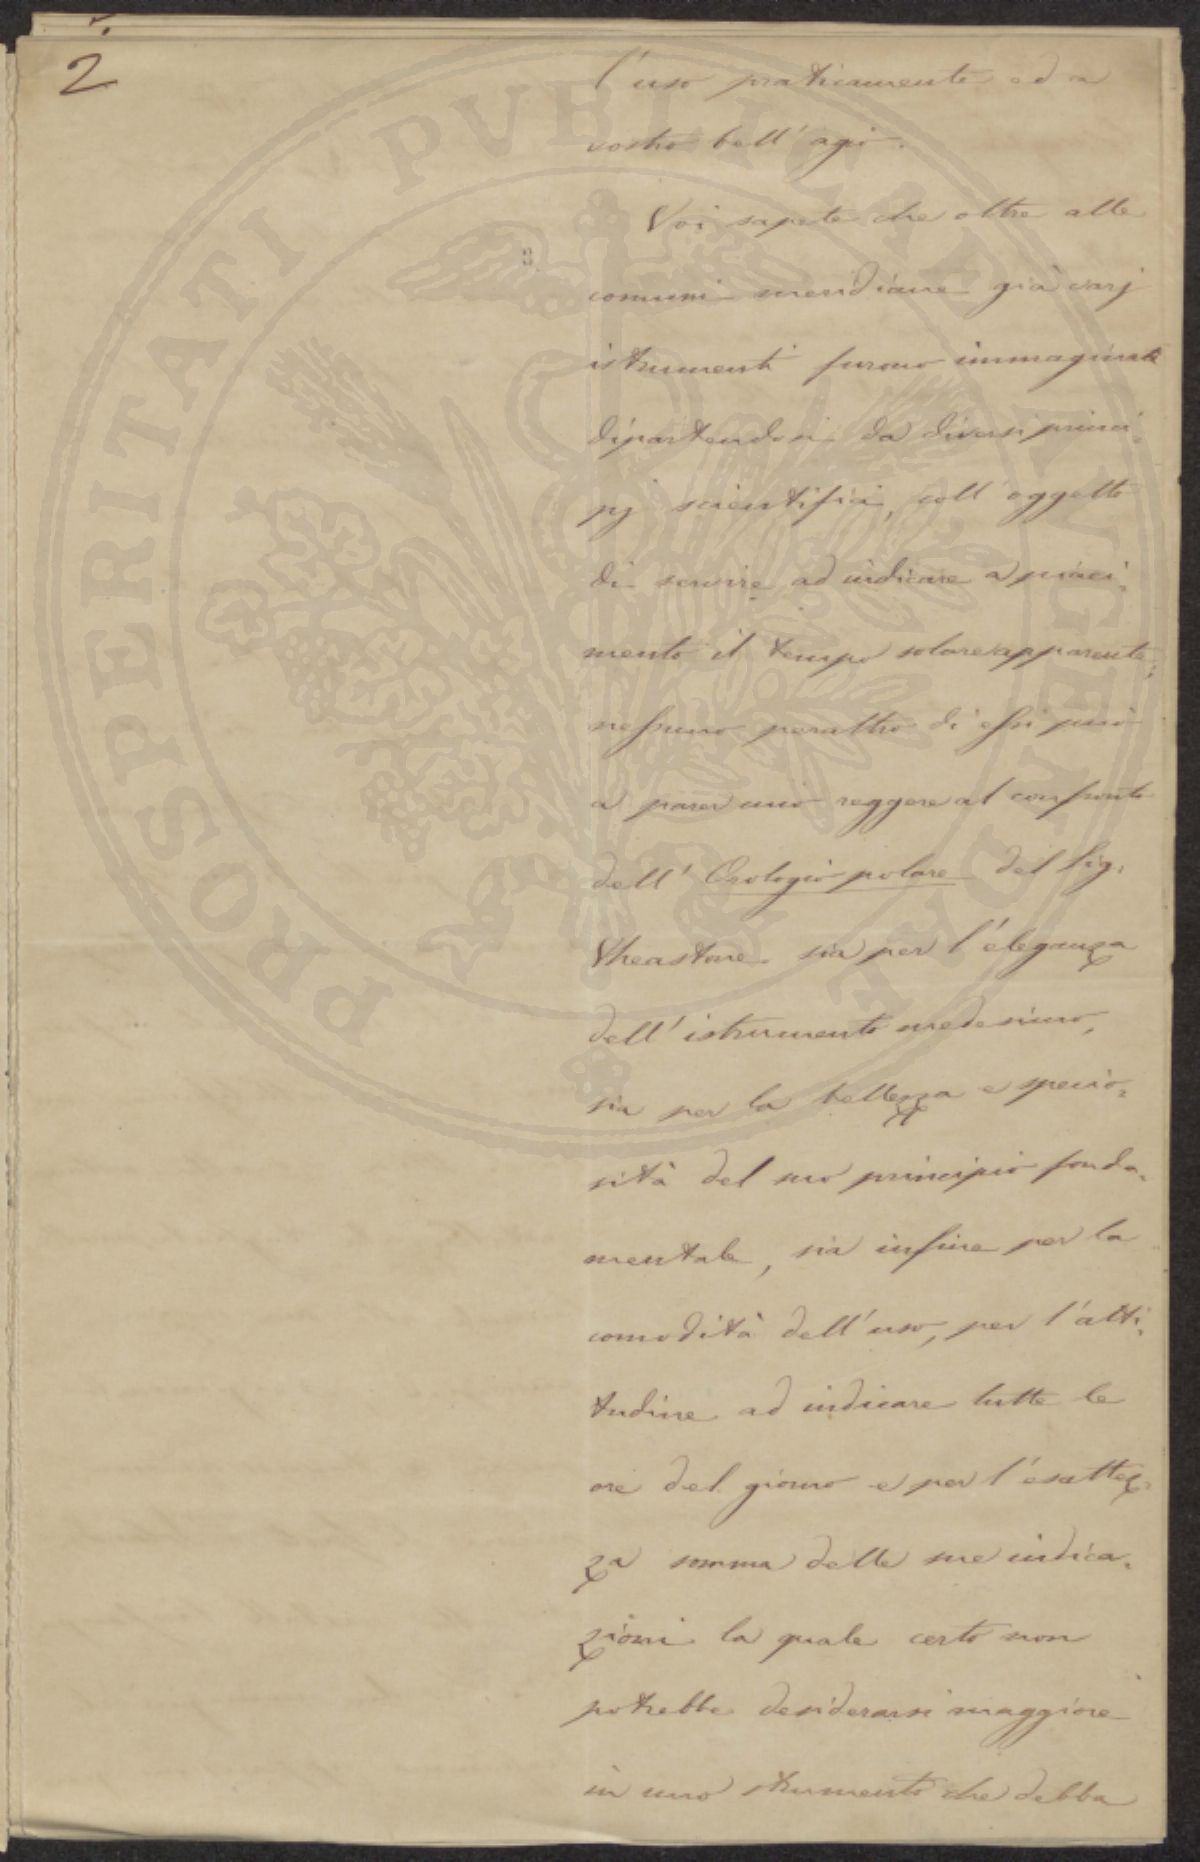 2
l'uso praticamente ed a
vostro bell'agio.
Voi sapete che oltre alle
comuni meridiane già varj
istrumenti furono immaginati
dipartendosi da diversi princi-
pj scientifici, coll'oggetto
di servire ad indicare a piaci-
mento il tempo solare apparente;
nessuno peraltro di essi può
a parer mio reggere al confronto
dell'Orologio polare del Sig.
Wheastone sia per l'eleganza
dell'istrumento medesimo,
sia per la bellezza e specio-
sità del suo principio fonda-
mentale, sia infine per la
comodità dell'uso, per l'atti-
tudine ad indicare tutte le
ore del giorno e per l'esattez-
za somma delle sue indica-
zioni la quale certo non
potrebbe desiderarsi maggiore
in uno strumento che debba
PROSPERITATI PVBLICAE AVGENDAE